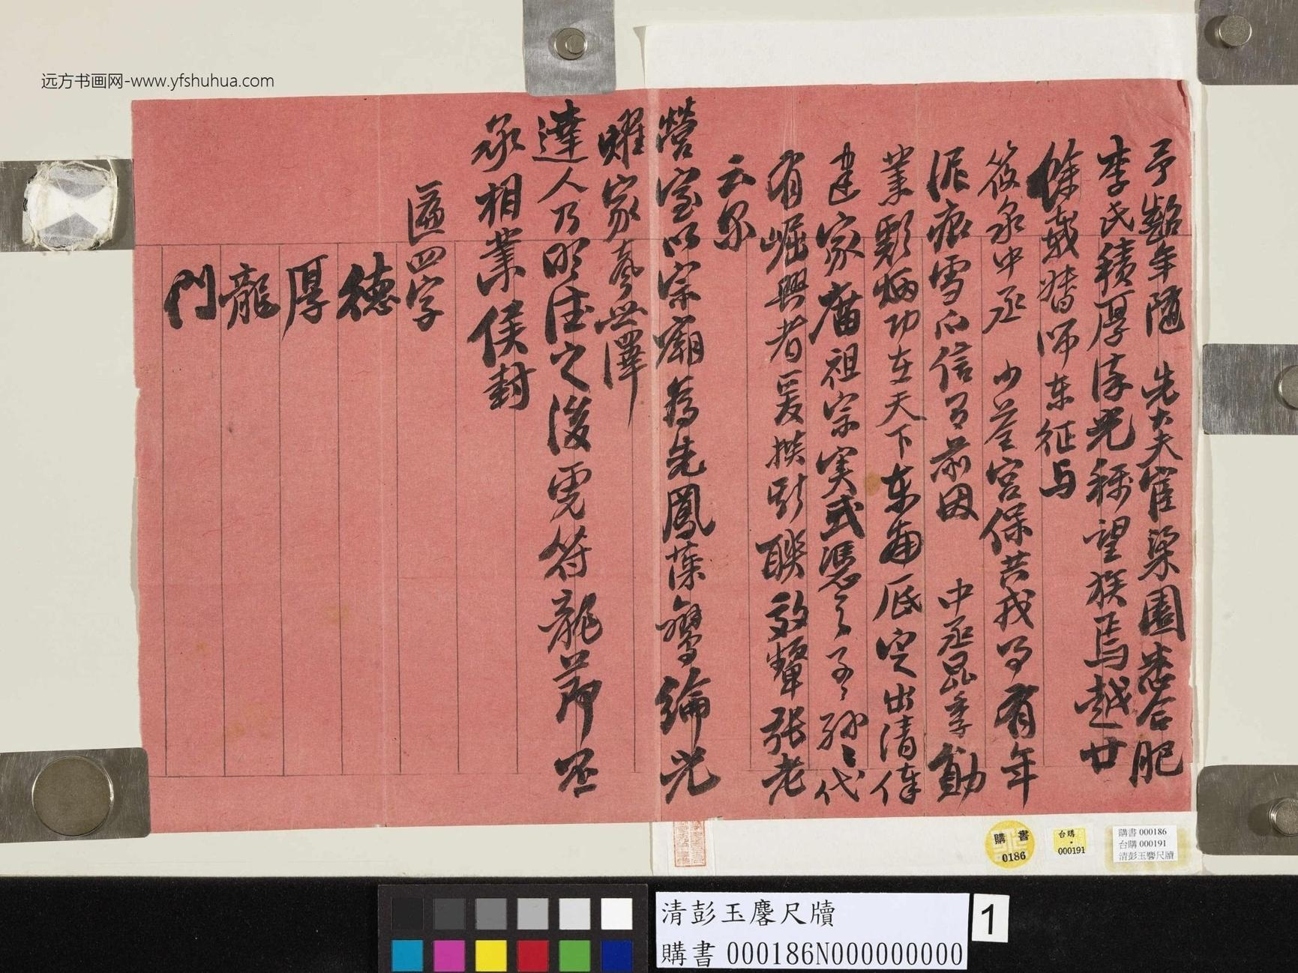 予髫年隨 先大夫宦梁園悉合肥
李氏積厚流光稱望族焉越廿
餘載督師東征与
筱泉中丞 少荃宮保共我事有年
泥痕雪爪信有前因 中丞昆季勛
業彪炳功在天下東南底定出清俸
建家廟祖宗實式憑之子々孫々代
有崛興者爰撰引聯效輩張老
云爾
營室以宗廟為先鳳藻鸞綸光
耀家聲世澤
達人乃明德之後虎符龍節丕
承相業侯封
匾四字
德
厚
龍
門
远方书画网-www.yfshuhua.com
購書
0186
台購
000191
購書 000186
台購 000191
清彭玉麐尺牘
清彭玉麐尺牘
購書 000186N000000000
1